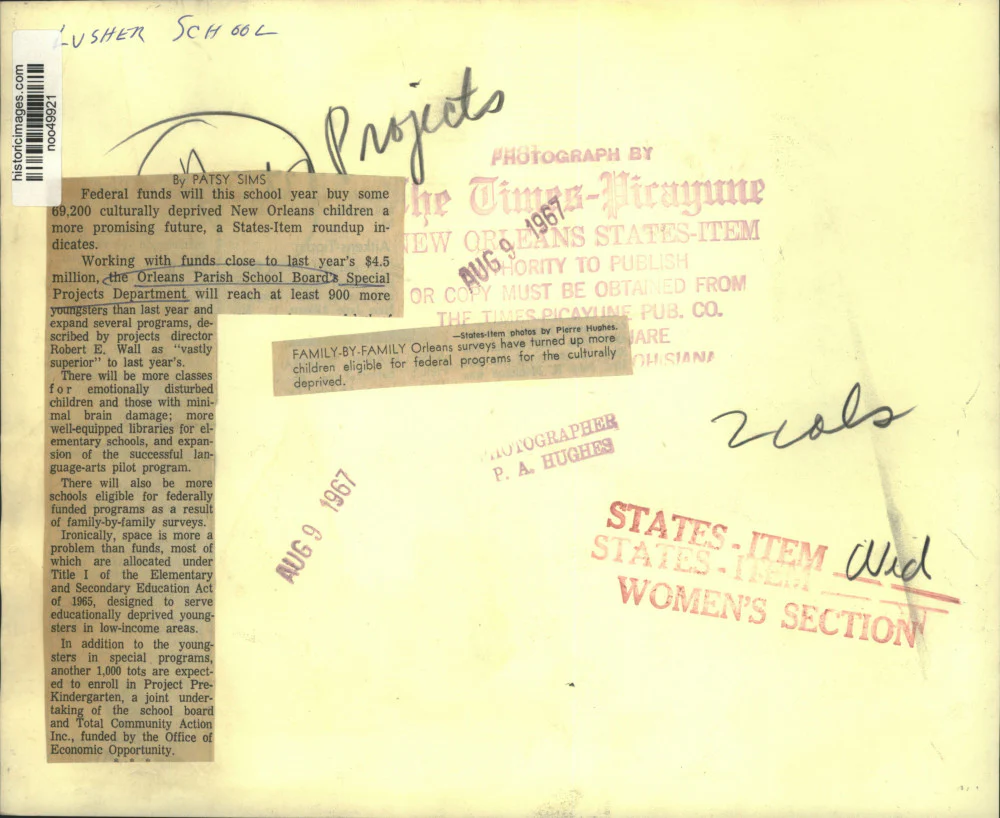 LUSHER SCHOOL
historicimages.com
noo49921
Projects
By PATSY SIMS
Federal funds will this school year buy some
69,200 culturally deprived New Orleans children a
more promising future, a States-Item roundup in-
dicates.
Working with funds close to last year's $4.5
million, the Orleans Parish School Board's Special
Projects Department will reach at least 900 more
youngsters than last year and
expand several programs, de-
scribed by projects director
Robert E. Wall as "vastly
superior" to last year's.
There will be more classes
for emotionally disturbed
children and those with mini-
mal brain damage; more
well-equipped libraries for el-
ementary schools, and expan-
sion of the successful lan-
guage-arts pilot program.
There will also be more
schools eligible for federally
funded programs as a result
of family-by-family surveys.
Ironically, space is more a
problem than funds, most of
which are allocated under
Title I of the Elementary
and Secondary Education Act
of 1965, designed to serve
educationally deprived young-
sters in low-income areas.
In addition to the young-
sters in special programs,
another 1,000 tots are expect-
ed to enroll in Project Pre-
Kindergarten, a joint under-
taking of the school board
and Total Community Action
Inc., funded by the Office of
Economic Opportunity.
PHOTOGRAPH BY
he Times-Picayune
NEW ORLEANS STATES-ITEM
AUG 9 1967
HORITY TO PUBLISH
OR COPY MUST BE OBTAINED FROM
THE TIMES PICAYUNE PUB. CO.
—States-Item photos by Pierre Hughes.
FAMILY-BY-FAMILY Orleans surveys have turned up more
children eligible for federal programs for the culturally
deprived.
2 cols
PHOTOGRAPHER
P. A. HUGHES
AUG 9 1967
STATES-ITEM
STATES-ITEM
Wed
WOMEN'S SECTION